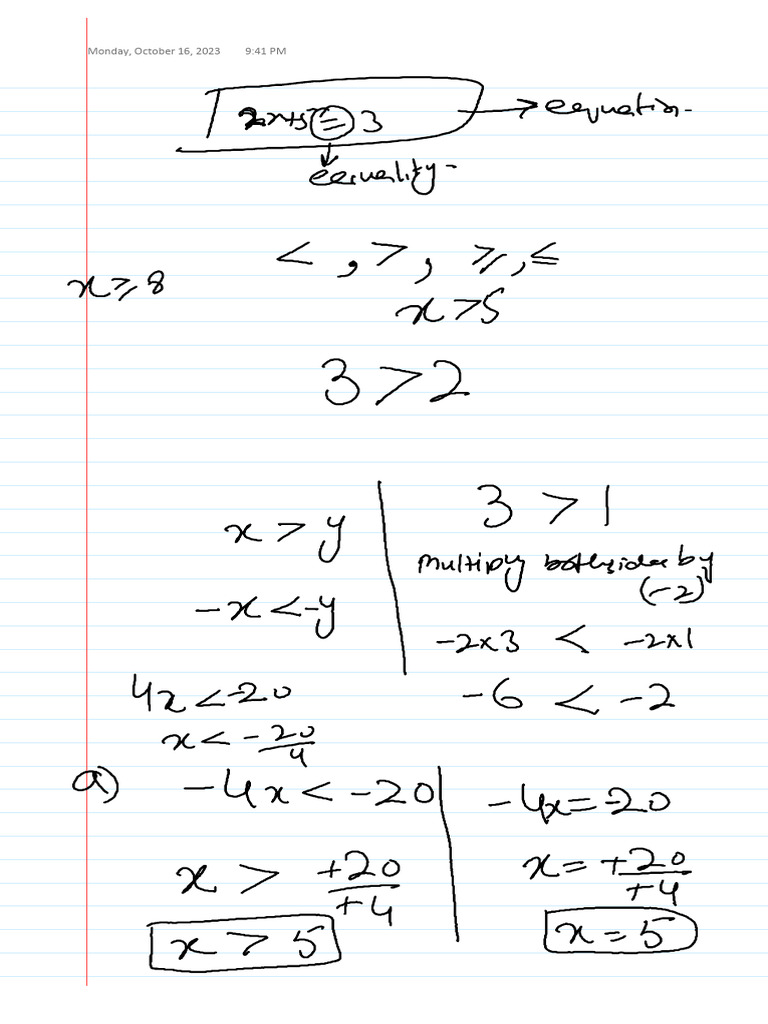 Monday, October 16, 2023 9:41 PM
2x+5 = 3 → eequation-
eequality-
< , > , ≥ , ≤
x ≥ 8
x > 5
3 > 2
x > y
3 > 1
multiply both sides by (-2)
-x < -y
-2x3 < -2x1
4x < -20
-6 < -2
x < -20/4
a) -4x < -20
-4x = -20
x > +20/+4
x = +20/+4
x > 5
x = 5